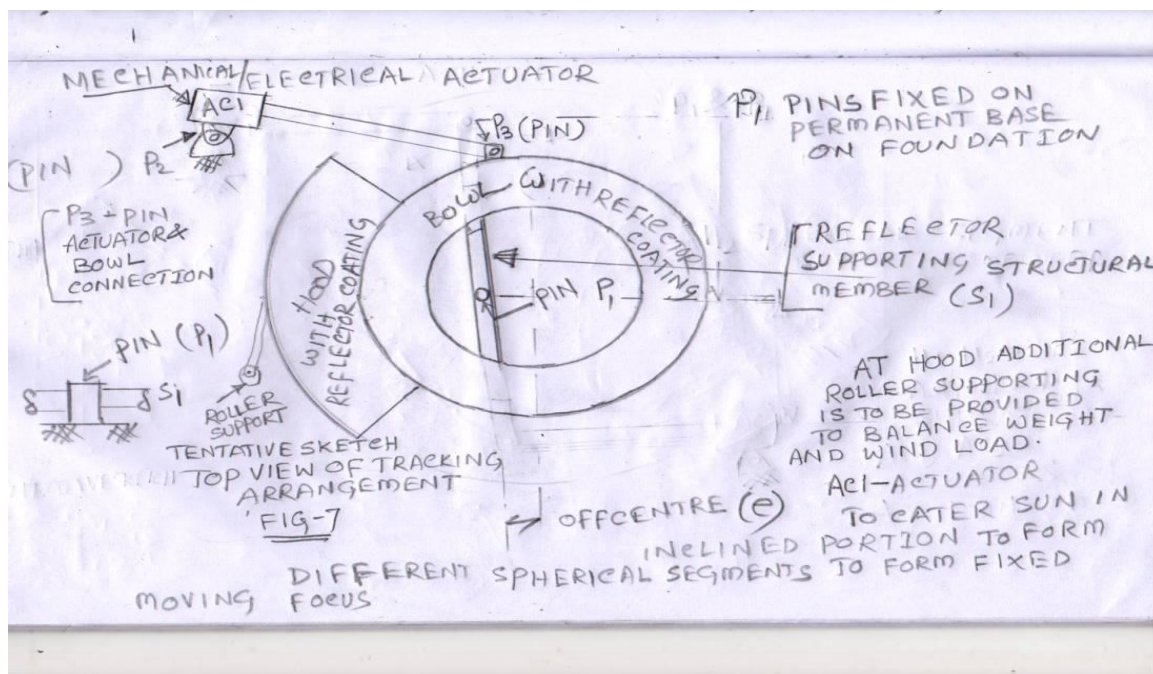 MECHANICAL/ELECTRICAL ACTUATOR
AC1
P3 (PIN)
(PIN ) P2
P3 - PIN
ACTUATOR &
BOWL
CONNECTION
P1 PINS FIXED ON
PERMANENT BASE
ON FOUNDATION
BOWL WITH REFLECTOR
COATING
HOOD
WITH
REFLECTOR COATING
PIN P1
REFLECTOR
SUPPORTING STRUCTURAL
MEMBER (S1)
PIN (P1)
S1
ROLLER
SUPPORT
AT HOOD ADDITIONAL
ROLLER SUPPORTING
IS TO BE PROVIDED
TO BALANCE WEIGHT
AND WIND LOAD.
TENTATIVE SKETCH
TOP VIEW OF TRACKING
ARRANGEMENT
FIG-7
AC1-ACTUATOR
OFFCENTRE (e)
TO CATER SUN IN
INCLINED PORTION TO FORM
DIFFERENT SPHERICAL SEGMENTS TO FORM FIXED
MOVING FOCUS